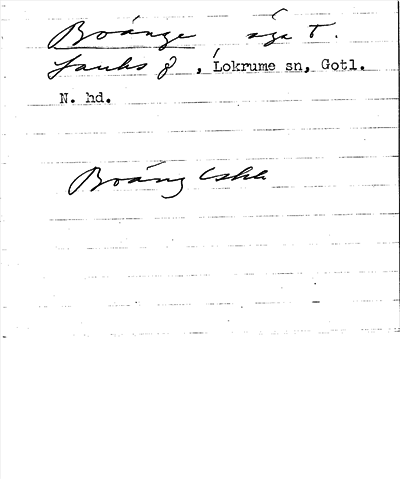 Boänge äga t.
Lauks g, Lokrume sn, Gotl.
N. hd.
Boäng